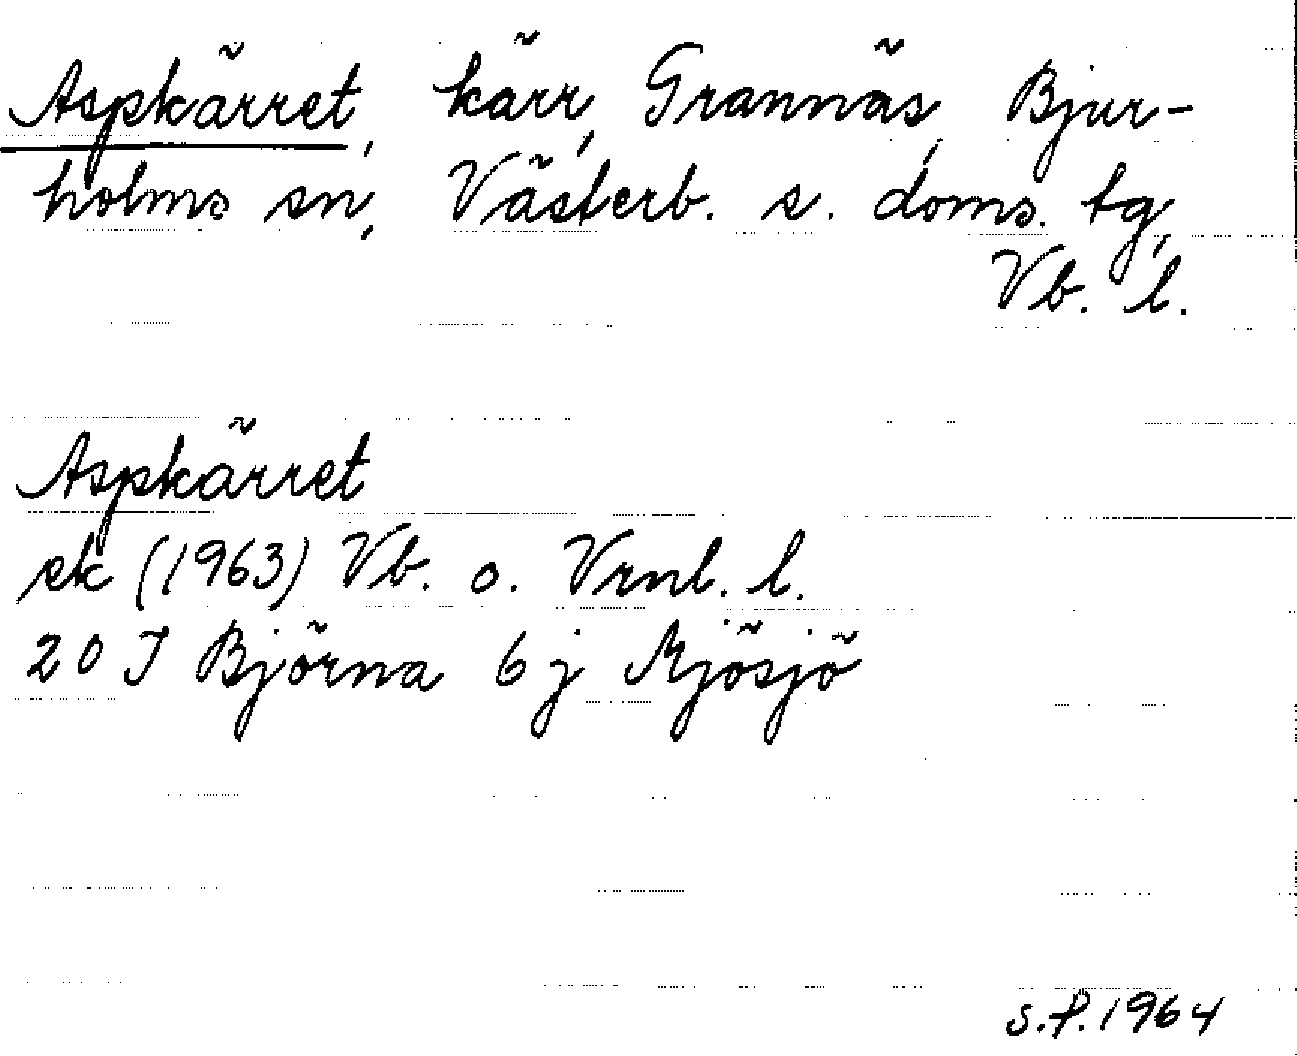 Aspkärret, kärr, Grannäs, Bjur-
holms sn, Västerb. s. doms. tg,
Vb. l.
Aspkärret
ek (1963) Vb. o. Vrnl. l.
20 J Björna 6 j Mjösjö
S.P. 1964